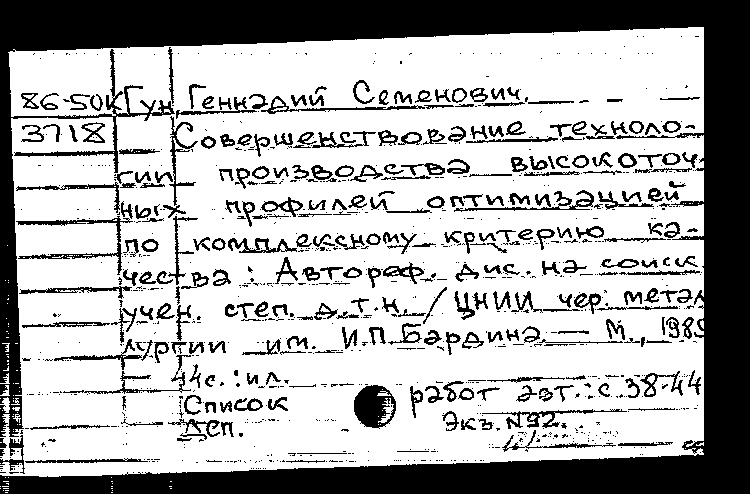 86-50К Гун, Геннадий Семенович.
3718 Совершенствование техноло-
гии производства высокоточ-
ных профилей оптимизацией
по комплексному критерию ка-
чества: Автореф. дис. на соиск.
учен. степ. д.т.н. / ЦНИИ чер. метал
лургии им. И.П.Бардина. — М., 1985
— 44с.: ил.
Список работ авт.: с.38-44
Дсп. Экз. N92.